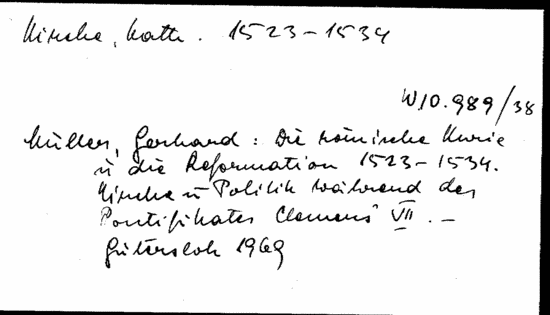 Kirche, kath. 1523-1534
W10.989/38
Müller, Gerhard: Die römische Kurie
u die Reformation 1523-1534.
Kirche u Politik während des
Pontifikates Clemens' VII. -
Gütersloh 1969